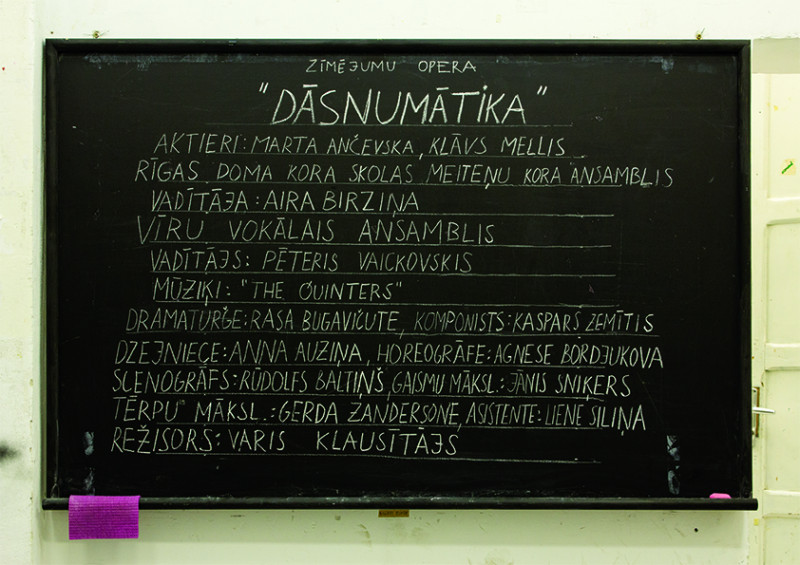 ZĪMĒJUMU OPERA
"DĀSNUMĀTIKA"
AKTIERI: MARTA ANČEVSKA, KLĀVS MELLIS
RĪGAS DOMA KORA SKOLAS MEITEŅU KORA ANSAMBLIS
VADĪTĀJA: AIRA BIRZIŅA
VĪRU VOKĀLAIS ANSAMBLIS
VADĪTĀJS: PĒTERIS VAICKOVSKIS
MŪZIĶI: "THE QUINTERS"
DRAMATURĢE: RASA BUGAVIČUTE, KOMPONISTS: KASPARS ZEMĪTIS
DZEJNIECE: ANNA AUZIŅA, HOREOGRĀFE: AGNESE BORDJUKOVA
SCENOGRĀFS: RŪDOLFS BALTIŅŠ, GAISMU MĀKSL.: JĀNIS SNIĶERS
TĒRPU MĀKSL.: GERDA ZANDERSONE, ASISTENTE: LIENE SILIŅA
REŽISORS: VARIS KLAUSITĀJS